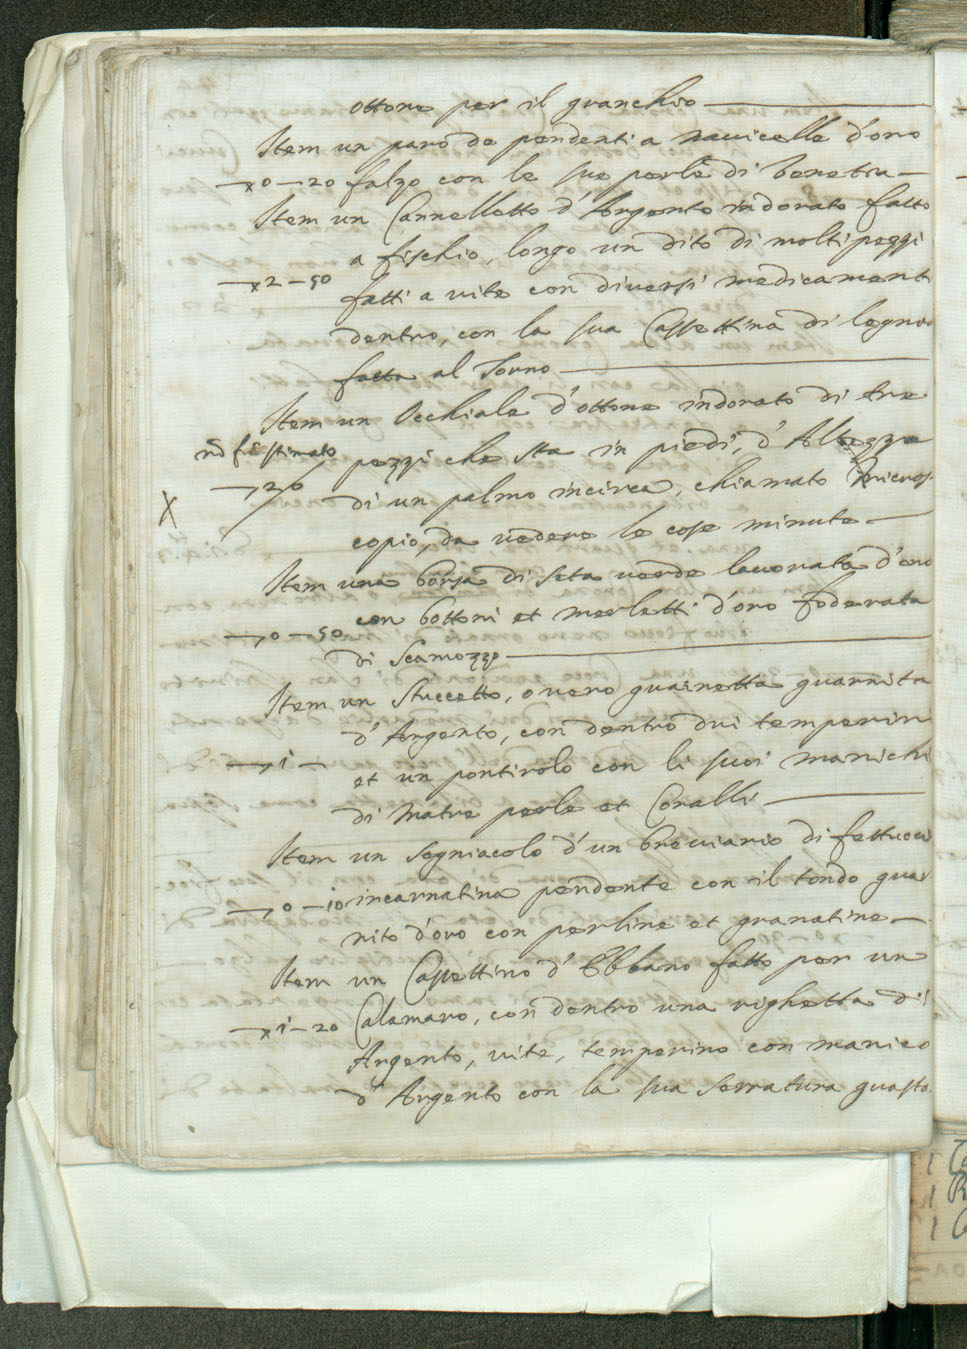 ottone per il granchio
Item un paro de pendenti a navicelle d'oro
0 - 20 falzo con le sue perle di Venetia
Item un Cannelletto d'Argento indorato fatto
a fischio, longo un dito di molti pezzi
2 - 50
fatti a vite con diversi medicamenti
dentro, con la sua Cassettina di legno
fatta al Torno
Item un Occhiale d'ottone indorato di tre
nō fu stimato pezzi che sta in piedi, d'Altezza
X di un palmo incirca, chiamato Micros-
copio, da vedere le cose minute
Item una borsa di seta verde lavorata d'oro
con bottoni et merletti d'oro foderata
0 - 50
di Scamozzo
Item un Stuccetto, overo guainetta guarnita
d'Argento, con dentro dui temperini
1 -
et un pontirolo con li suoi manichi
di Matre perle et Coralli
Item un segniacolo d'un breviario di fettucci
0 - 10 incarnatina pendente con il tondo guar
nito d'oro con perline et granatine
Item un Cassettino d'Ebbano fatto per un
1 - 20 Calamaro, con dentro una righetta di
Argento, vite, temperino con manico
d'Argento con la sua serratura guasta